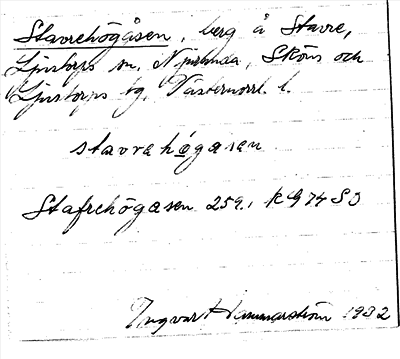 Stavrehögåsen, berg å Stavre,
Ljustorps sn, Njurunda, Sköns och
Ljustorps tg, Västernorrl. l.
stavrahǫgasen
Stafrehögasen 259. kG 74 SO
Ingvar Hammarström 1932